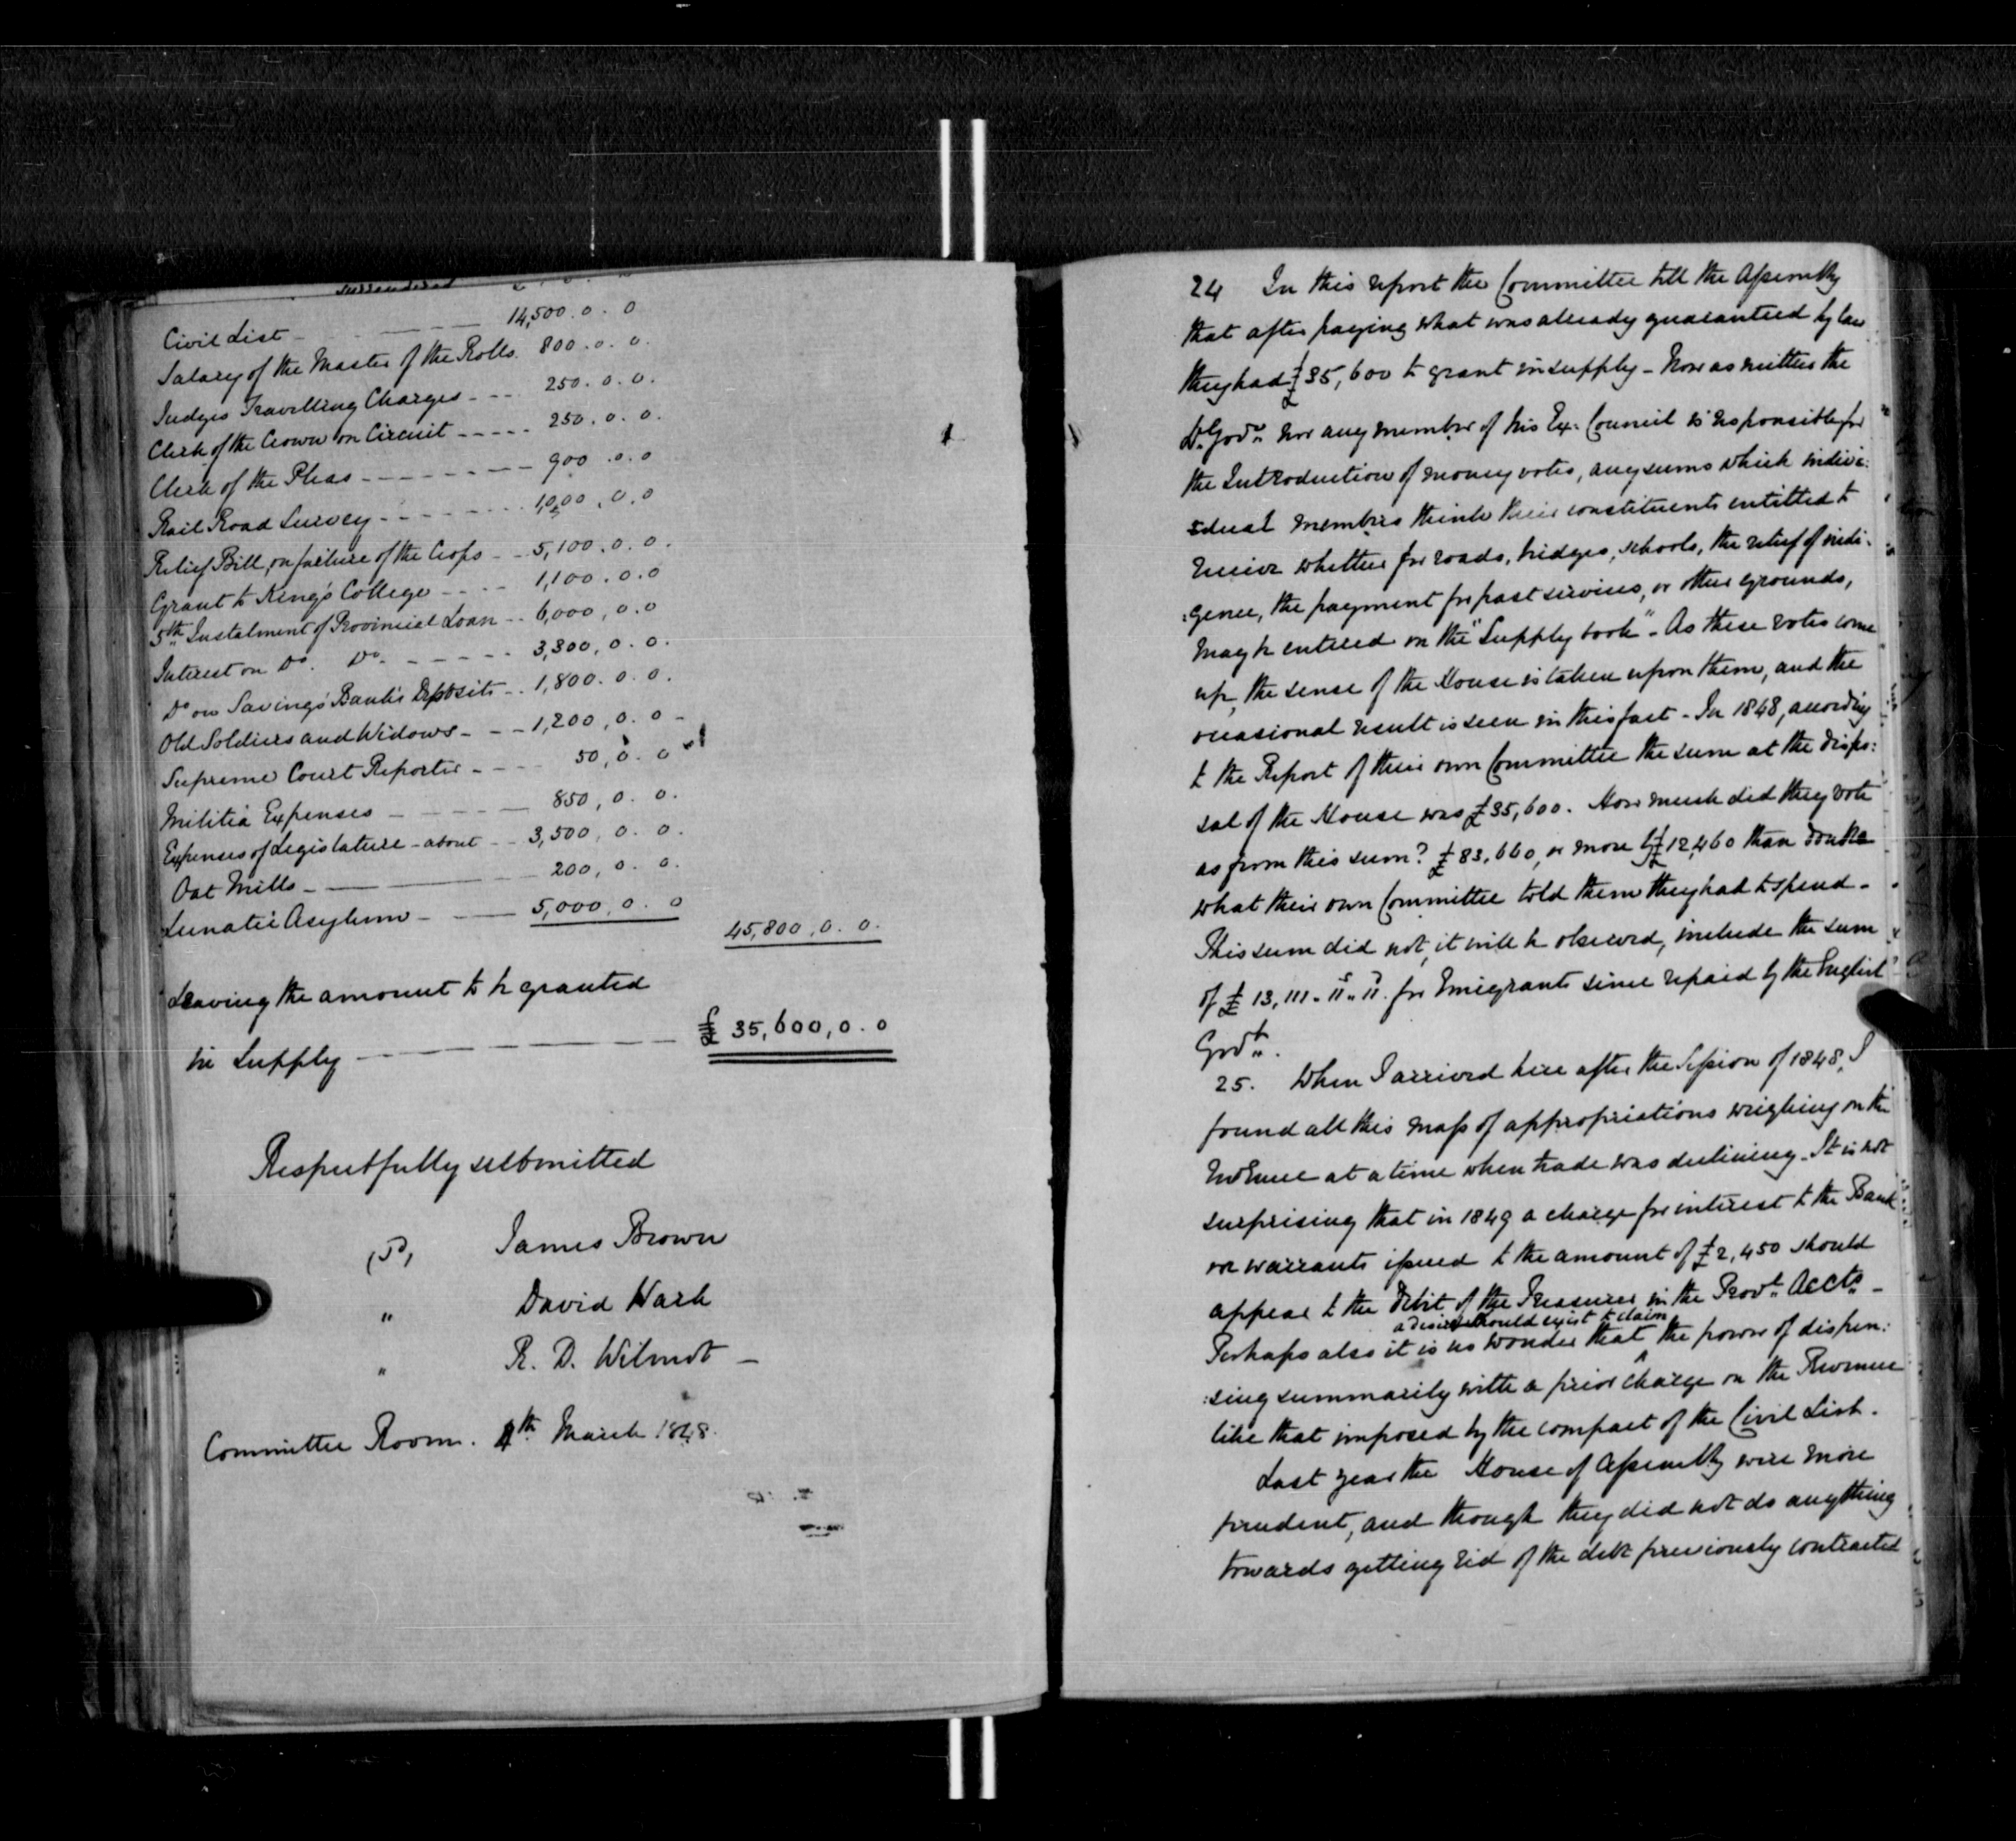 surrendered
Civil List - 14,500.0.0
Salary of the Master of the Rolls. 800.0.0.
Judges Travelling Charges - - - 250.0.0.
Clerk of the Crown on Circuit - - - - - 250.0.0.
Clerk of the Pleas - - - - - - - - 900.0.0
Rail Road Survey - - - - - - - 1,000,0.0
Relief Bill, on failure of the Crops - - 5,100.0.0.
Grant to King's College - - - - 1,100.0.0
5th Instalment of Provincial Loan - - 6,000,0.0
Interest on Do. Do. - - - - - 3,300,0.0.
Do on Savings Bank's Deposits - - 1,800.0.0.
Old Soldiers and Widows - - - 1,200,0.0 -
Supreme Court Reporter - - - - 50,0.0
Militia Expenses - 850,0.0.
Expenses of Legislature - about - - 3,500,0.0.
Oat Mills - 200,0.0.
Lunatic Asylum - 5,000,0.0
45,800,0.0.
Leaving the amount to be granted
in Supply - £35,600,0.0
Respectfully submitted
James Brown
" David Wark
" R. D. Wilmot -
Committee Room. 4th March 1848.
24 In this report the Committee tell the Assembly
that after paying what was already guaranteed by law
they had £35,600 to grant in supply - Now as neither the
Lt. Govr. nor any member of his Ex. Council is responsible for
the Introduction of money votes, any sums which indivi:
:dual members think their constituents entitled to
receive whether for roads, bridges, schools, the relief of indi:
:gence, the payment for past services, or other grounds,
may be entered on the "Supply book" - As these votes come
up, the sense of the House is taken upon them, and the
occasional result is seen in this fact - In 1848, according
to the Report of their own Committee the sum at the dispo:
sal of the House was £35,600. How much did they vote
as from this sum? £83,660, or more by £12,460 than double
what their own Committee told them they had to spend -
This sum did not, it will be observed, include the sum
of £13,111.. 11s.. 11d. for Emigrants since repaid by the English
Govt.
25. When I arrived here after the Session of 1848, I
found all this mass of appropriations weighing on the
revenue at a time when trade was declining - It is not
surprising that in 1849 a charge for interest to the Bank
on warrants issued to the amount of £2,450 should
appear to the Debit of the Treasurer in the Provl. Accts. -
a desire should exist to claim
Perhaps also it is no wonder that ^ the power of dispen:
:sing summarily with a prior charge on the Revenue
like that imposed by the compact of the Civil List.
Last year the House of Assembly were more
prudent, and though they did not do anything
towards getting rid of the debt previously contracted